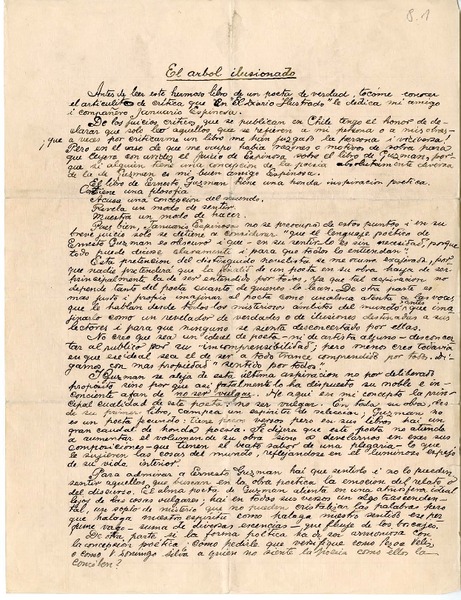 8.1
El arbol ilusionado
Antes de leer este hermoso libro de un poeta de verdad, tocóme conocer
el articulito de crítica que "En El Diario Ilustrado" le dedica mi amigo
i compañero Januario Espinosa.
De los juicios críticos que se publican en Chile tengo el honor de de-
clarar que solo leo aquellos que se refieren a mi persona o a mis obras
que a veces por criticarme un libro me han juzgado la persona i viceversa!
Pero en el caso de que me ocupo había razones o motivos de sobra para
que leyera con avidez el juicio de Espinosa sobre el libro de Guzman, por-
que si alguien tiene una concepción de la poesía absolutamente diversa
de la de Guzman es mi buen amigo Espinosa.
El libro de Ernesto Guzman tiene una honda inspiración poética.
Contiene una filosofía
Acusa una concepción del mundo.
Revela un modo de sentir.
Muestra un modo de hacer.
Pues bien, Januario Espinosa no se preocupa de estos puntos i en su
breve juicio solo se detiene a considerar "que el lenguaje poético de
Ernesto Guzman es obscuro i que en su sentir lo es sin necesidad, porque
todo puede decirse claramente i para que todos lo entiendan".
Esta pretensión del distinguido novelista se me ocurre exajerada, por-
que nadie pretenderá que la de un poeta en su obra haya de ser
principalmente la de ser entendido por todos. Ya que tal aspiración no
depende tanto del poeta cuanto de quienes lo lean. De otra parte es
mas justo i propio imajinar al poeta como unaalma atenta a las voces
que le hablan desde todos los misteriosos ámbitos del mundo, que
juzgarlo como un revelador de verdades o de ilusiones destinadas a sus
lectores i para que ninguno se sienta desconcertado por ellas.
No creo que sea un ideal de poeta ni de artista alguno desconcer-
tar al público por su incomprensibilidad; pero menos creo todavía
que ese ideal sea el de ser a todo trance comprendido por todos. Di-
gamos con mas propiedad "sentido por todos".
I Guzman se aleja de esta última aspiración no por deliberado
propósito sino por que así fatalmente lo ha dispuesto su noble e in-
conciente afan de no ser vulgar. He aquí en mi concepto la prin-
cipal cualidad de este poeta; no ser vulgar. En toda su obra, des-
de su primer libro, campea un espíritu de seleccion. Guzman no
es un poeta fecundo: tiene pocos versos pero en sus libros hai un
gran caudal de honda poesía. Se dijera que este poeta no atiende
a aumentar el volúmen de su obra sino a descansar en esas sus
composiciones que tienen el beato sabor de una plegaria de lo que
le sujieren las cosas del mundo, reflejándose en el luminoso espejo
de su vida interior.
Para admirar a Ernesto Guzman hai que sentirlo i no lo pueden
sentir aquellos que buscan en la obra poética la emocion del relato o
del discurso. El alma poeta de Guzman alienta en una atmósfera ideal
lejos de las cosas vulgares; hai en todos sus versos un algo trascenden-
tal, un soplo de misterio que no pueden cristalizar las palabras pero
que halaga nuestro espíritu como halaga nuestro sentido el per-
fume vago suma de diversas esencias que fluye de los boscajes.
De otra parte si la forma poética ha de ser armoniosa con
la concepción poética ¿Cómo pedirle que versifique como Pezoa Véliz
o como V. Domingo Silva a quien no siente la poesía como ellos la
conciben?